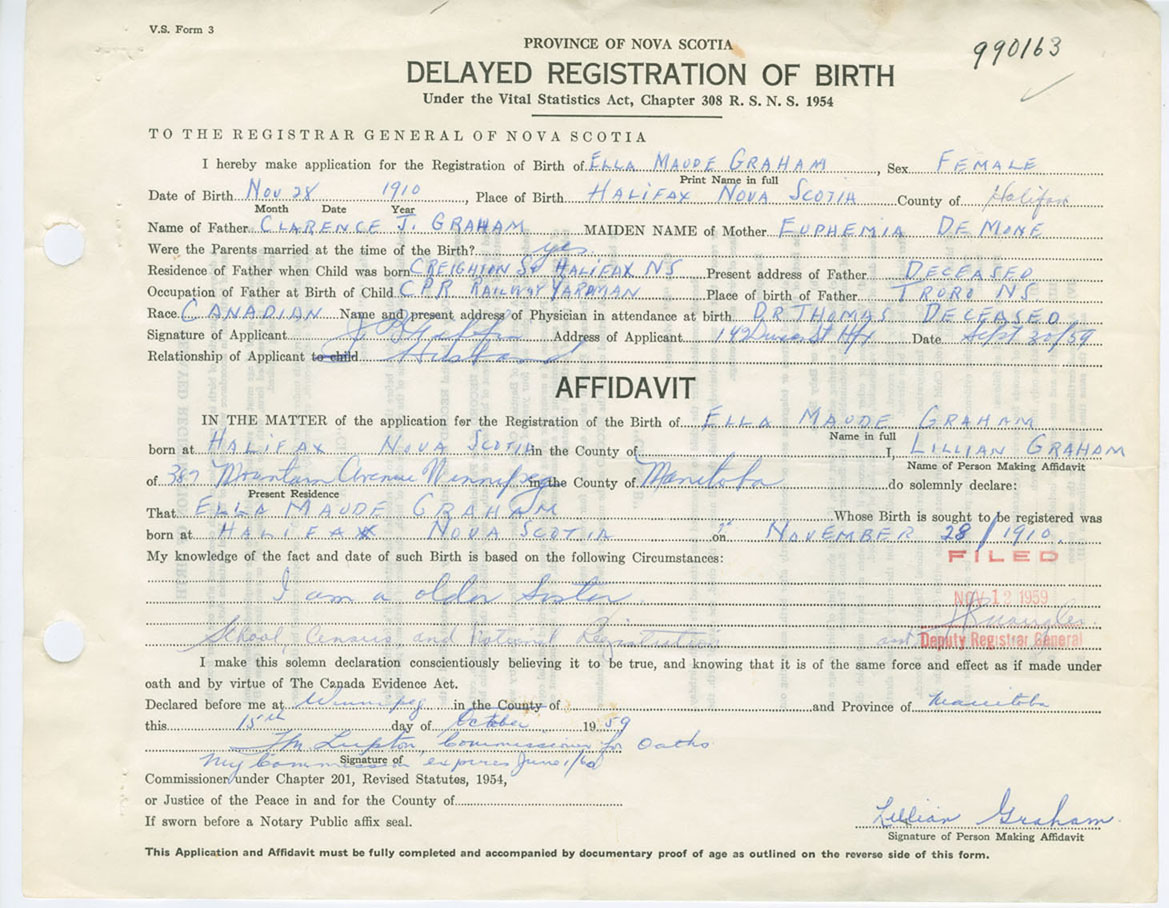 V.S. Form 3
990163
PROVINCE OF NOVA SCOTIA
DELAYED REGISTRATION OF BIRTH
Under the Vital Statistics Act, Chapter 308 R. S. N. S. 1954
TO THE REGISTRAR GENERAL OF NOVA SCOTIA
I hereby make application for the Registration of Birth of ELLA MAUDE GRAHAM, Sex FEMALE
Print Name in full
Date of Birth NOV 28 1910, Place of Birth HALIFAX NOVA SCOTIA County of Halifax
Month Date Year
Name of Father CLARENCE J. GRAHAM MAIDEN NAME of Mother EUPHEMIA DEMONE
Were the Parents married at the time of the Birth? yes
Residence of Father when Child was born CREIGHTON ST HALIFAX NS Present address of Father DECEASED
Occupation of Father at Birth of Child CPR RAILWAY YARDMAN Place of birth of Father TRURO NS.
Race CANADIAN Name and present address of Physician in attendance at birth DR THOMAS DECEASED
Signature of Applicant Address of Applicant 142 St Hfx Date Sept 30/59
Relationship of Applicant to child Husband
AFFIDAVIT
IN THE MATTER of the application for the Registration of the Birth of ELLA MAUDE GRAHAM
Name in full
born at HALIFAX NOVA SCOTIA in the County of I, LILLIAN GRAHAM
Name of Person Making Affidavit
of 387 Mountain Avenue Winnipeg in the County of Manitoba do solemnly declare:
Present Residence
That ELLA MAUDE GRAHAM Whose Birth is sought to be registered was
born at HALIFAX NOVA SCOTIA on NOVEMBER 28/1910
My knowledge of the fact and date of such Birth is based on the following Circumstances:
FILED
I am a older Sister
NOV 12 1959
School, Census and National Registration
Deputy Registrar General
I make this solemn declaration conscientiously believing it to be true, and knowing that it is of the same force and effect as if made under
oath and by virtue of The Canada Evidence Act.
Declared before me at Winnipeg in the County of and Province of Manitoba
this 15th day of October 1959
Lupton, Commissioner for Oaths
My Commission expires June 1/62
Signature of
Commissioner under Chapter 201, Revised Statutes, 1954,
or Justice of the Peace in and for the County of
If sworn before a Notary Public affix seal.
Lillian Graham
Signature of Person Making Affidavit
This Application and Affidavit must be fully completed and accompanied by documentary proof of age as outlined on the reverse side of this form.